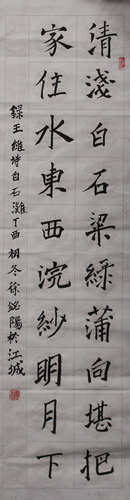 清淺白石梁綠蒲向堪把
家住水東西浣紗明月下
錄王維詩白石灘丁酉初冬徐銘陽於江城